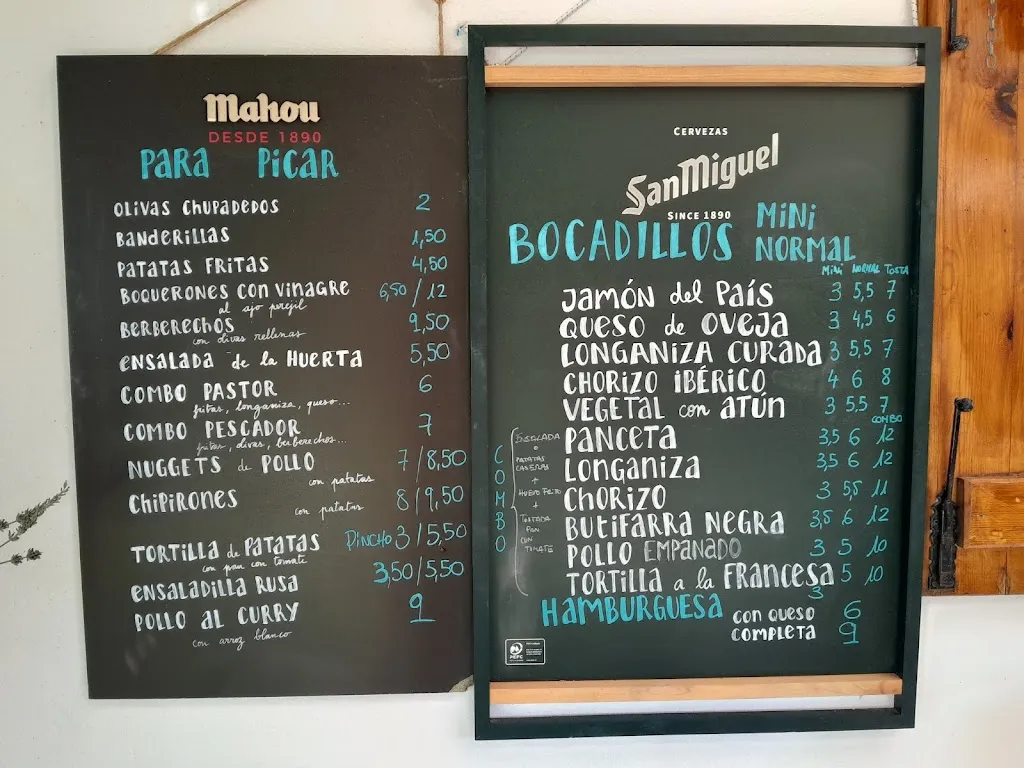 Mahou
DESDE 1890
PARA PICAR
OLIVAS CHUPADEDOS 2
BANDERILLAS 1,50
PATATAS FRITAS 4,50
BOQUERONES CON VINAGRE 6,50 / 12
al ajo perejil
BERBERECHOS 9,50
con olivas rellenas
ENSALADA de la HUERTA 5,50
COMBO PASTOR 6
fritas, longaniza, queso...
COMBO PESCADOR 7
fritas, olivas, berberechos...
NUGGETS de POLLO 7/8,50
con patatas
CHIPIRONES 8/9,50
con patatas
TORTILLA de PATATAS PINCHO 3/5,50
con pan con tomate
ENSALADILLA RUSA 3,50/5,50
POLLO AL CURRY 9
con arroz blanco
CERVEZAS
San Miguel
SINCE 1890
BOCADILLOS MINI
NORMAL
MINI NORMAL TOSTA
JAMÓN del PAÍS 3 5,5 7
QUESO de OVEJA 3 4,5 6
LONGANIZA CURADA 3 5,5 7
CHORIZO IBÉRICO 4 6 8
VEGETAL con ATÚN 3 5,5 7
COMBO
PANCETA 3,5 6 12
LONGANIZA 3,5 6 12
CHORIZO 3 5,5 11
BUTIFARRA NEGRA 3,5 6 12
POLLO EMPANADO 3 5 10
TORTILLA a la FRANCESA 3 5 10
COMBO
PATATAS
CASERAS
+
HUEVO FRITO
+
TOSTADA
PAN
CON
TOMATE
HAMBURGUESA CON QUESO 6
COMPLETA 9
PEFC